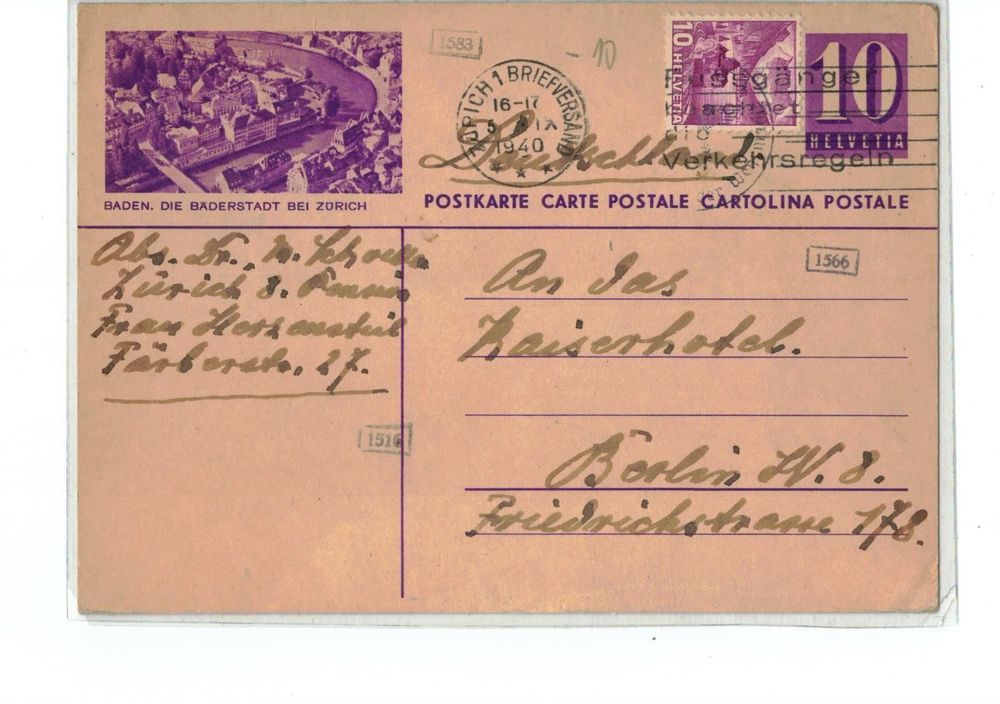 1583
- 10
10
HELVETIA
10
HELVETIA
ZÜRICH 1 BRIEFVERSAND
16-17
5 IX
1940
Fussgänger
Verkehrsregeln
Deutschland
BADEN. DIE BÄDERSTADT BEI ZÜRICH
POSTKARTE CARTE POSTALE CARTOLINA POSTALE
Abs. Dr.
Zürich 8. Pension
Frau
Färberstr. 27.
1566
An das
Kaiserhotel.
1516
Berlin W. 8.
Friedrichstrasse 178.